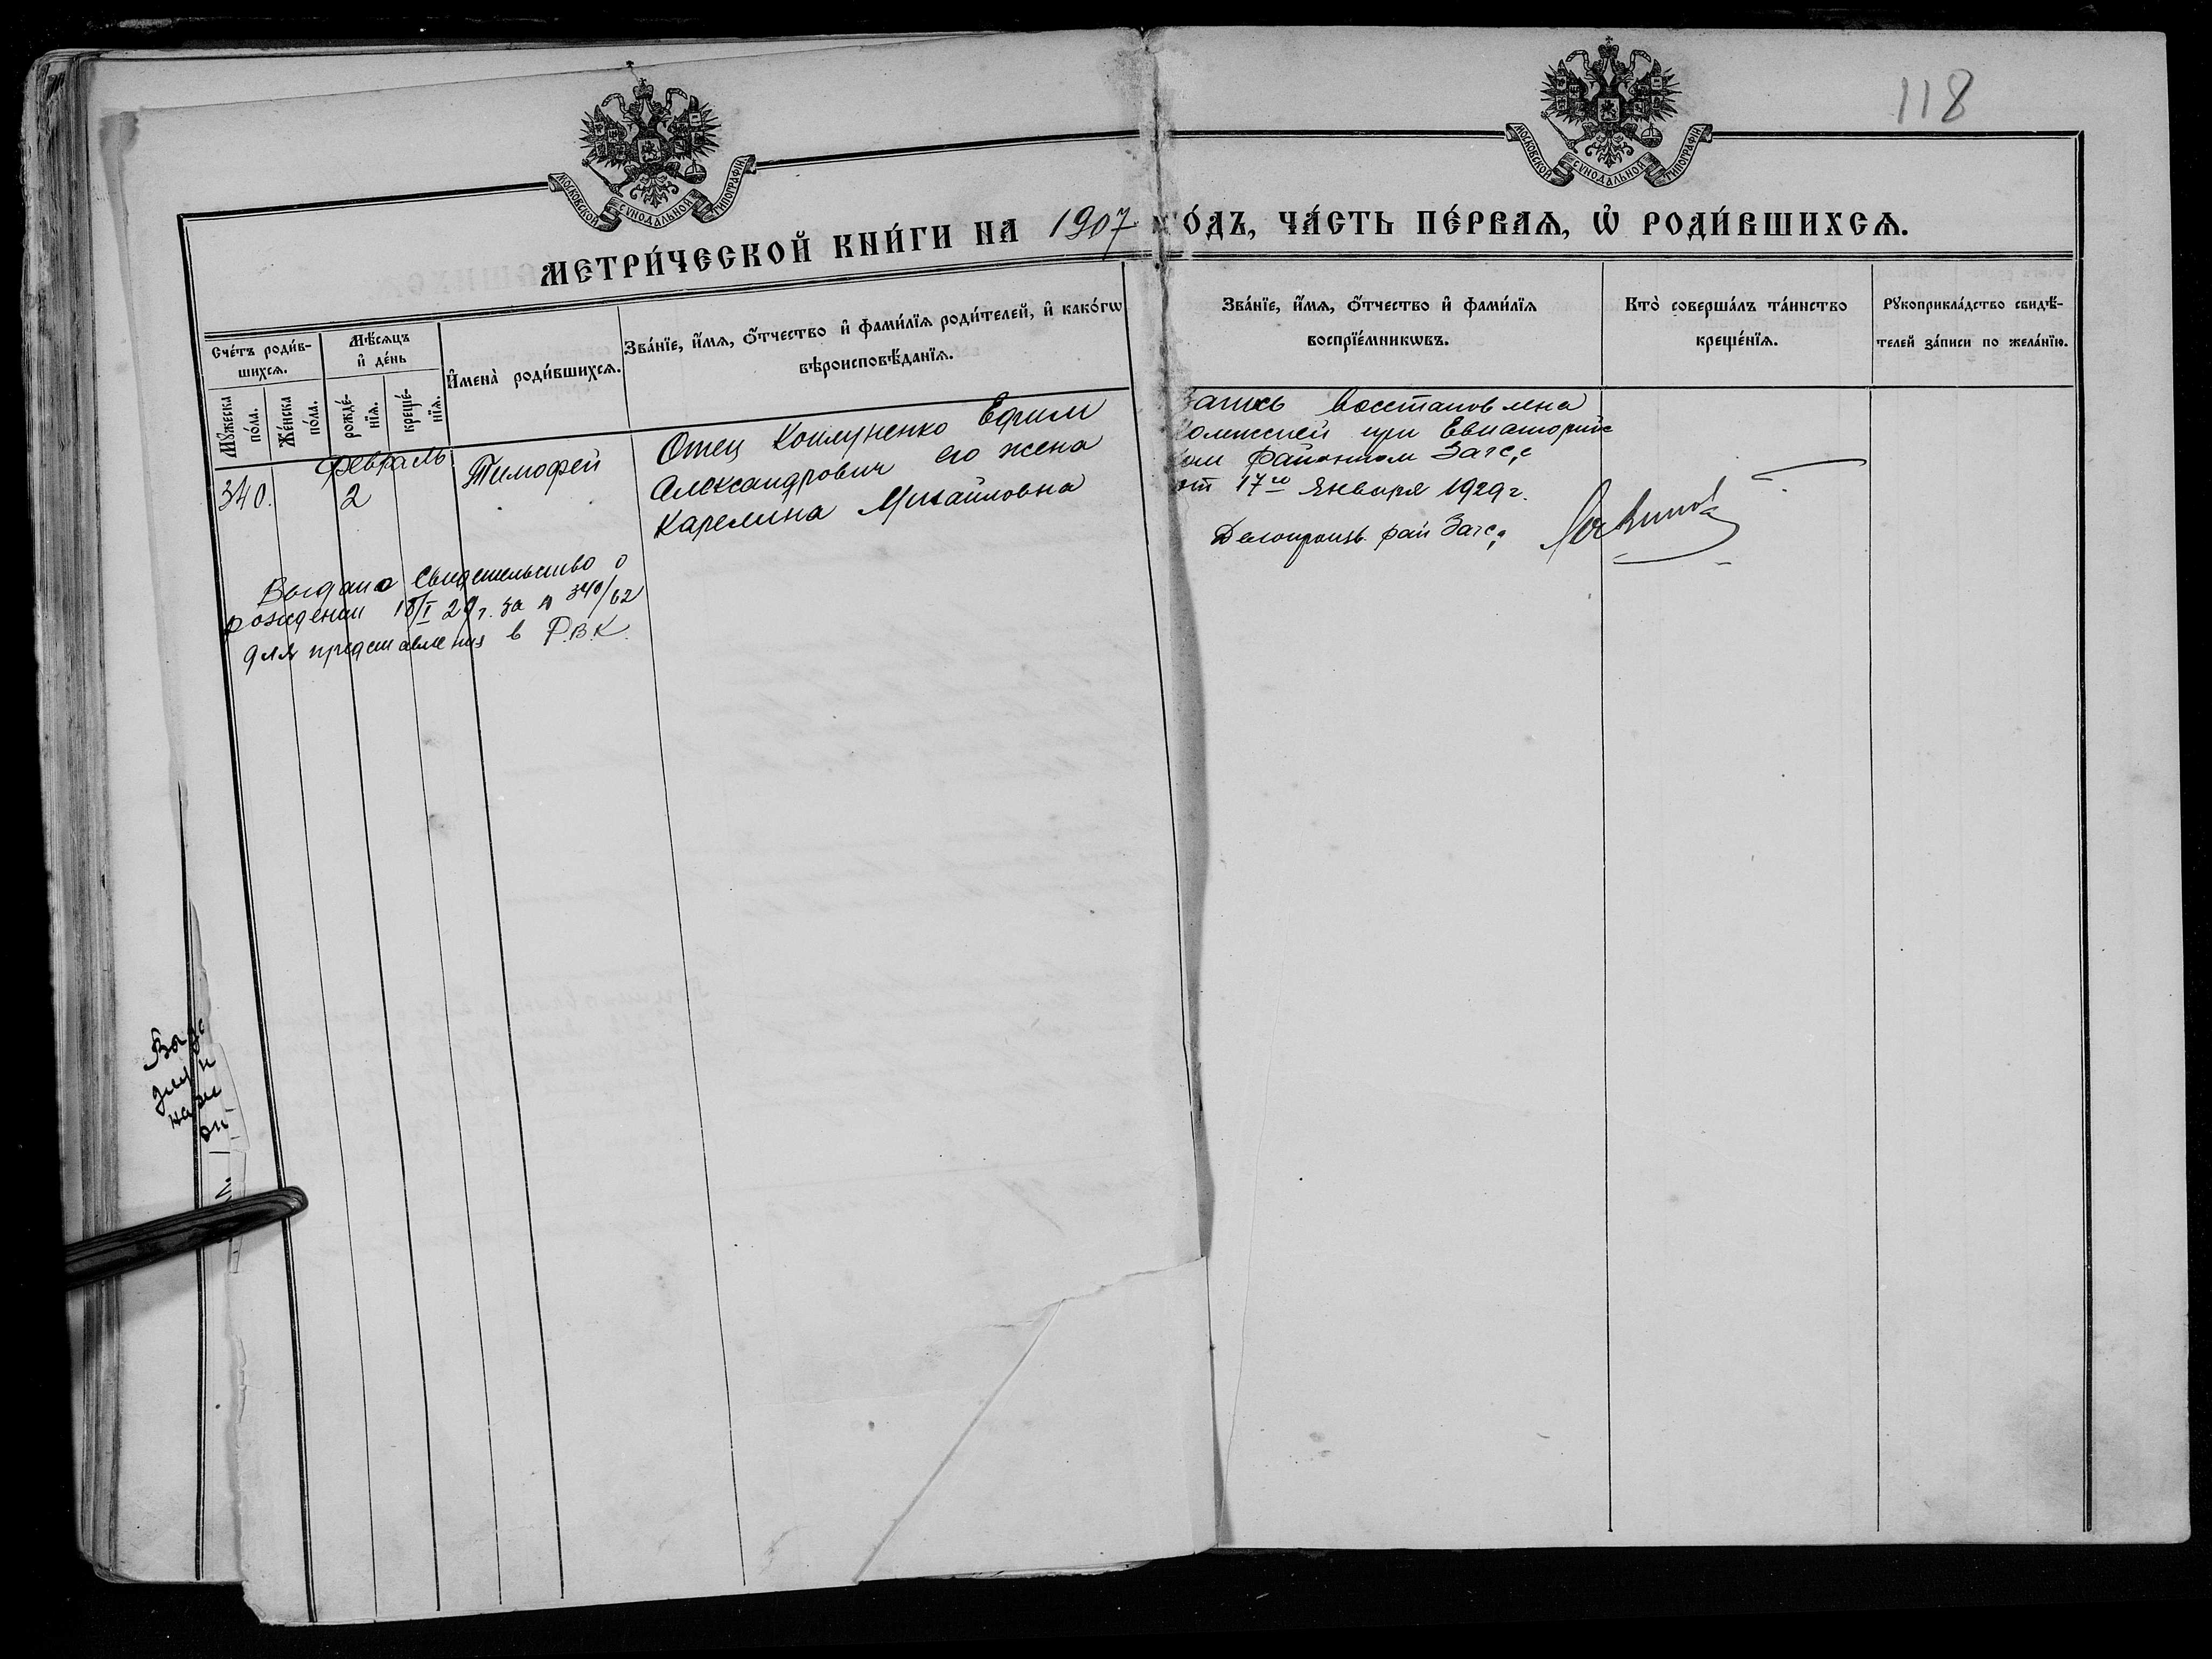 118
МОСКОВСКОЙ СѴНОДАЛЬНОЙ ТИПОГРАФІИ
МОСКОВСКОЙ СѴНОДАЛЬНОЙ ТИПОГРАФІИ
МЕТРИ́ЧЕСКОЙ КНИ́ГИ НА 1907 О́ДЪ, ЧА́СТЬ ПЕ́РВАѦ, Ѡ҆ РОДИ́ВШИХСѦ.
Сче́тъ роди́в-
шихсѧ.
Мꙋ́жеска
по́ла.
Же́нска
по́ла.
Мѣ́сѧцъ
и҆ де́нь
рожде́-
нїѧ.
креще́-
нїѧ.
И҆мена̀ роди́вшихсѧ.
Зва́нїе, и҆́мѧ, ѻ҆́тчество и҆ фами́лїѧ роди́телей, и҆ како́гѡ
вѣроисповѣ́данїѧ.
Зва́нїе, и҆́мѧ, ѻ҆́тчество и҆ фами́лїѧ
воспрїе́мникѡвъ.
Кто̀ соверша́лъ та́инство
креще́нїѧ.
Рꙋкоприкла́дство свидѣ́-
телей за́писи по жела́нїю.
Февраль
340.
2
Тимофей
Отец Коилуненко Ефим
Александрович его жена
Карелина Михайловна
Запись восстановлена
Комиссией при Евпаторийс
ком Районном Загсе
от 17го Января 1929 г.
Делопроизв. рай Загса
Выдано Свидетельство о
рождении 18/I 29 г. за № 340/62
для представления в Р.В.К.